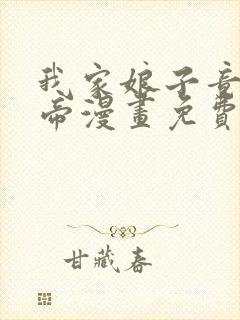 我家娘子竟
帝漫畫免費
甘藏春